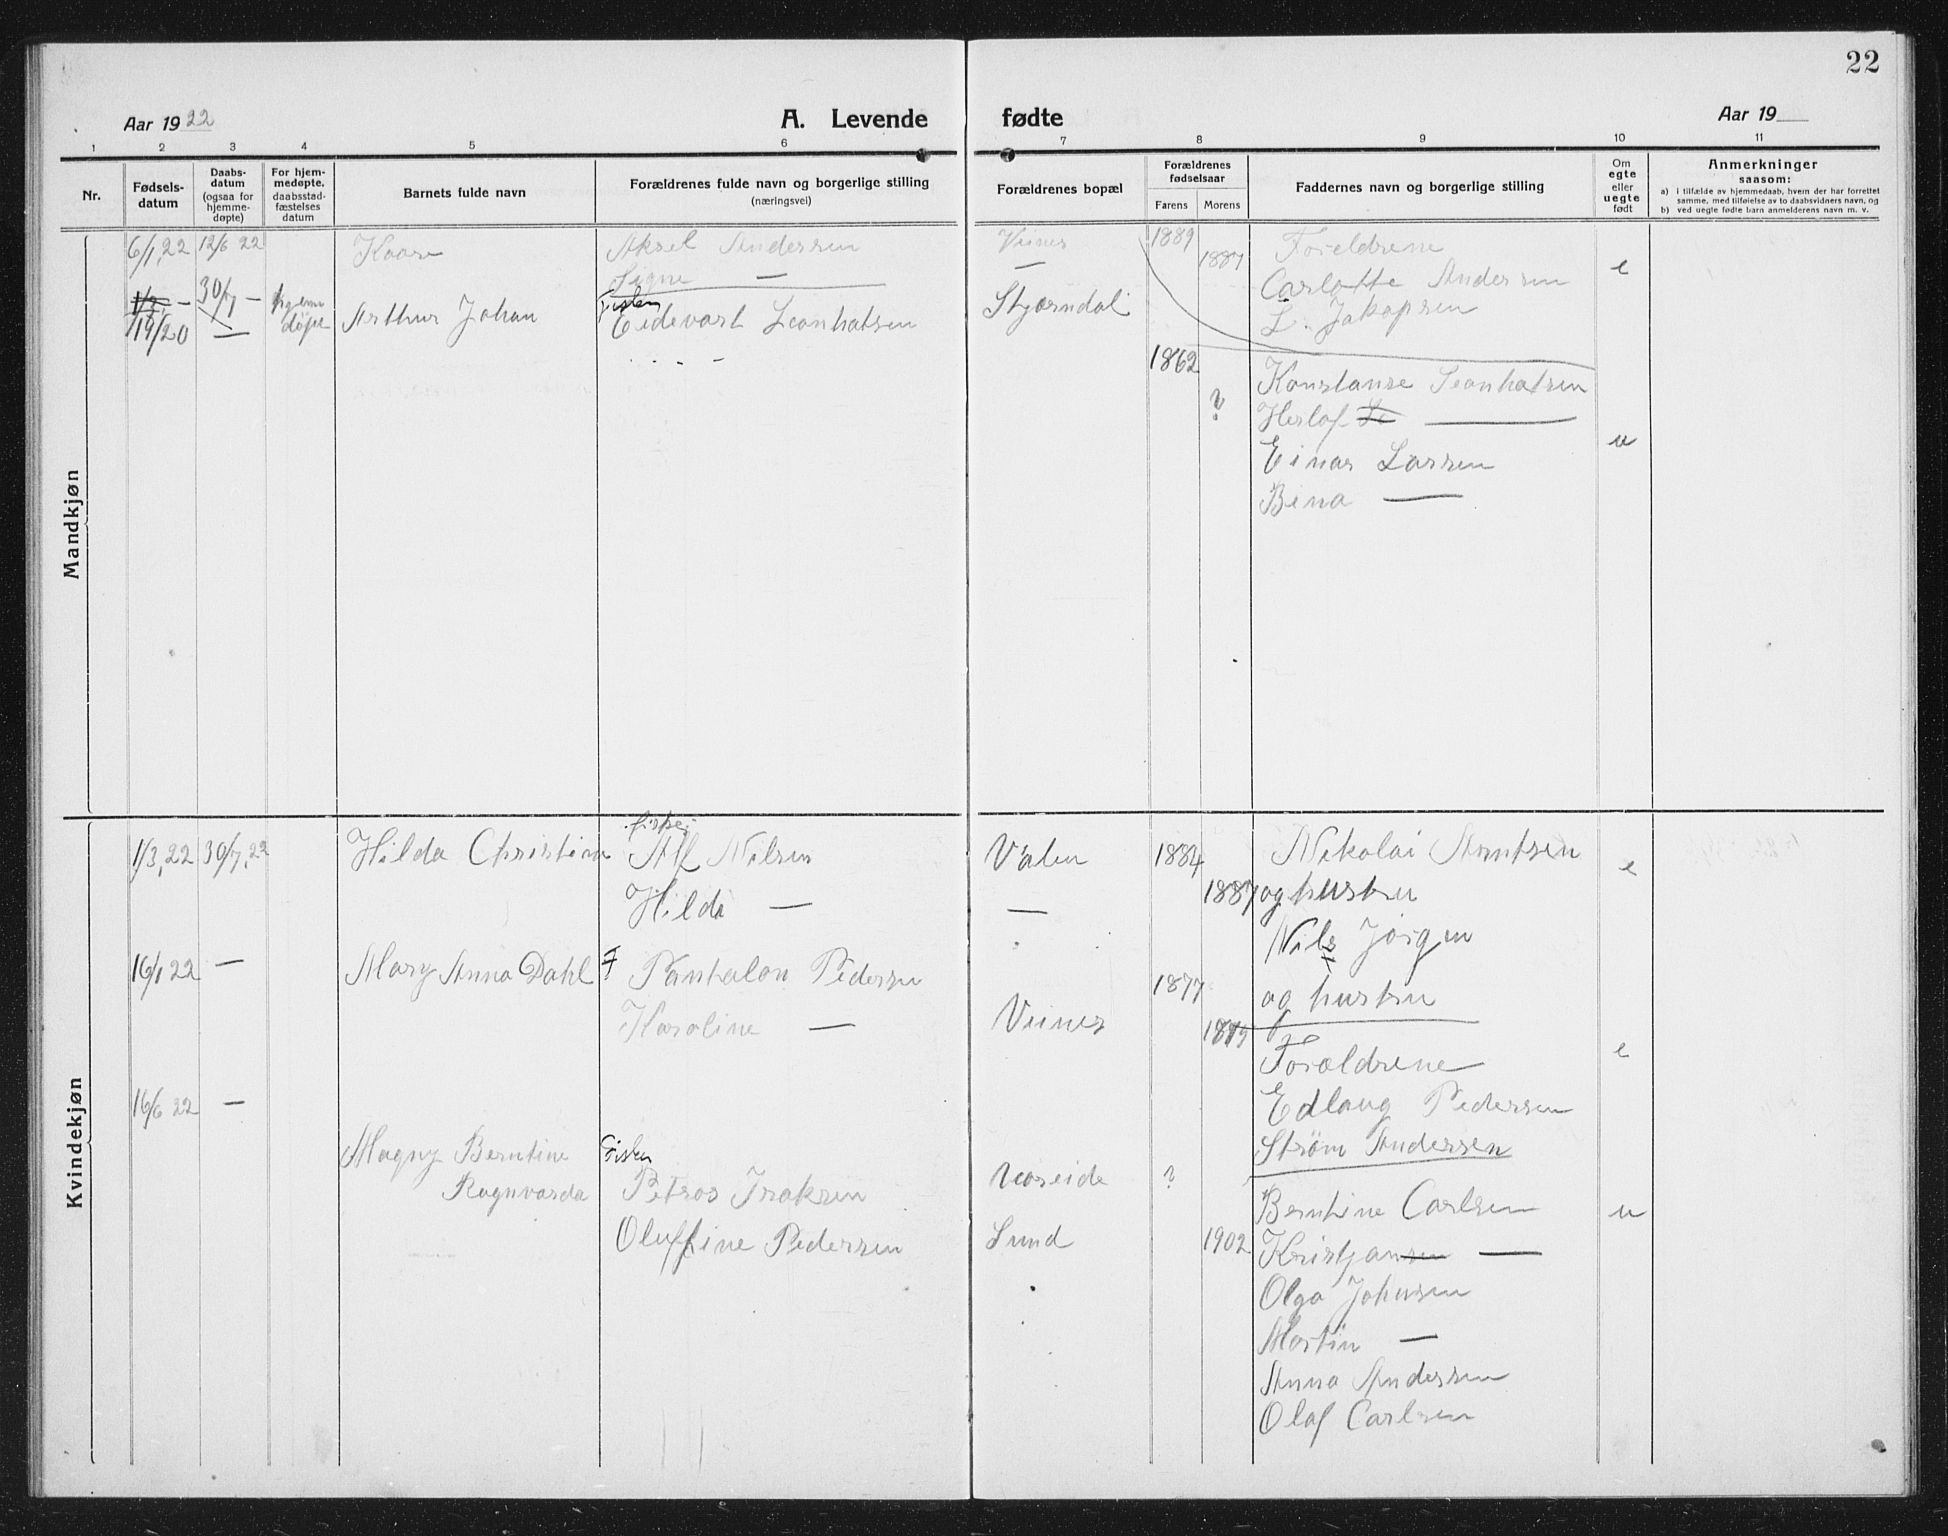 22
Aar 1922
A. Levende fødte
Aar 19
1 2 3 4 5 6 7 8 9 10 11
Nr.
Fødsels-
datum
Daabs-
datum
(ogsaa for
hjemme-
døpte)
For hjem-
medøpte,
daabsstad-
fæstelses
datum
Barnets fulde navn
Forældrenes fulde navn og borgerlige stilling
(næringsvei)
Forældrenes bopæl
Forældrenes
fødselsaar
Farens Morens
Faddernes navn og borgerlige stilling
Om
egte
eller
uegte
født
Anmerkninger
saasom:
a) i tilfælde av hjemmedaab, hvem der har forrettet
samme, med tilføielse av to daabsvidners navn, og
b) ved uegte fødte barn anmelderens navn m. v.
Mandkjøn
6/1,22 12/6 22 Kaare Aksel Andersen Veines 1889 Foreldrene e
Signe — — 1887 Carlotte Andersen
L. Jakopsen
19/20 30/7 — hjemme
døpt Arthur Johan Fisker
Eidevart Leonhatsen Stjærndal 1862 Konstanse Leonhatsen u
? Herlof —
Einar Larsen
Bina —
Kvindekjøn
1/3,22 30/7,22 Hilda Christina fisker
Alf Nilsen Valen 1884 Nikolai Arntsen e
Hilda — — 1887 og hustru
Nils Jørgen
og hustru
16/1 22 — Mary Anna Dahl F Pantalon Pedersen Veines 1877 Foraldrene e
Karoline — Edlaug Pedersen
Strøm Andersen
16/6 22 — Magny Berntine
Ragnvarda Fisker
Petras Isaksen Uareide ? Berntine Carlsen u
Oluffine Pedersen Lund 1902 Kristjansen —
Olga Johnsen
Martin —
Anna Andersen
Olaf Carlsen